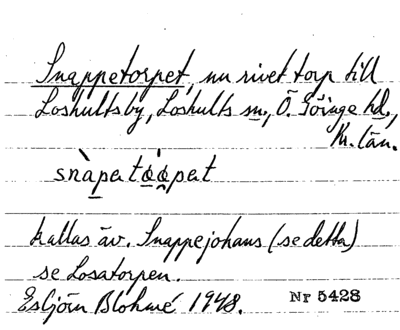 Snappetorpet, nu rivet torp till
Loshultsby, Loshults sn, Ö. Göinge hd.,
Kr. län.
snàpatò̱o̱pat
kallas äv. Snappejohans (se detta)
se Losatorpen.
Esbjörn Blohmé 1948. Nr 5428